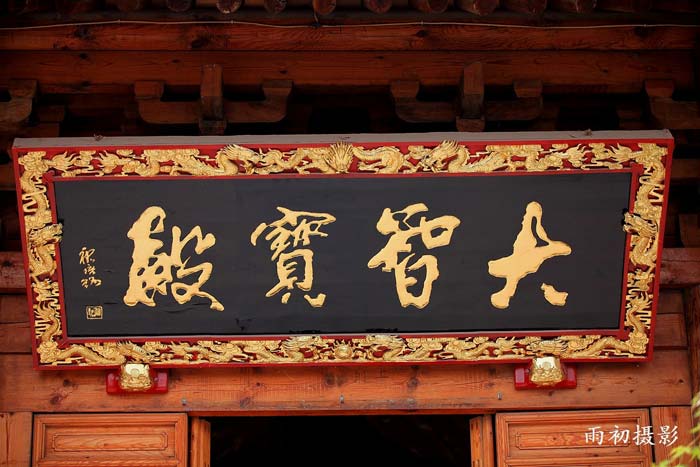 大智寶殿
雨初摄影